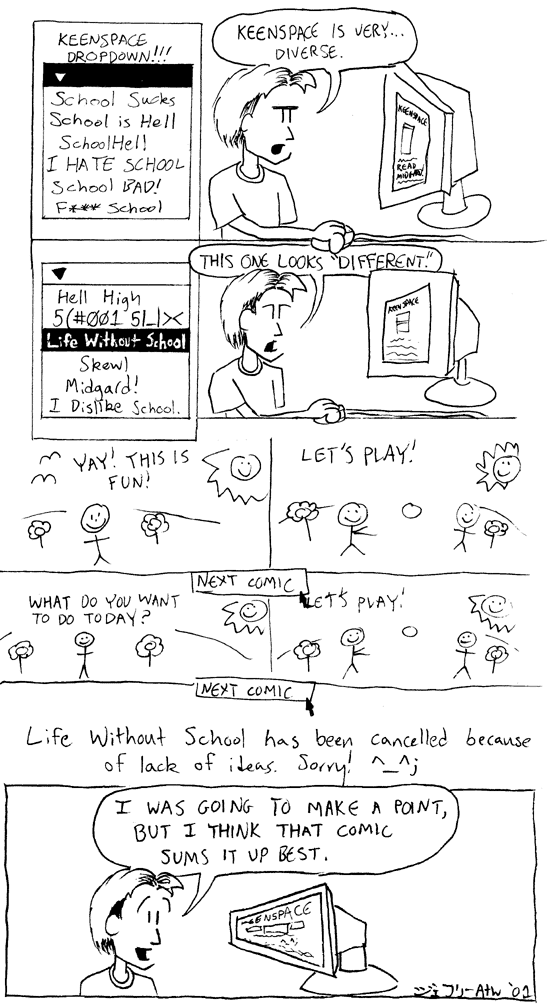 KEENSPACE
DROPDOWN!!!
School Sucks
School is Hell
SchoolHell
I HATE SCHOOL
School BAD!
F*** School
KEENSPACE IS VERY...
DIVERSE.
KEENSPACE
READ
MIDGARD!
Hell High
5(#001 5|_|><
Life Without School
Skewl
Midgard!
I Dislike School.
THIS ONE LOOKS "DIFFERENT."
KEENSPACE
YAY! THIS IS
FUN!
LET'S PLAY!
NEXT COMIC
WHAT DO YOU WANT
TO DO TODAY?
LET'S PLAY!
NEXT COMIC
Life Without School has been cancelled because
of lack of ideas. Sorry! ^_^;
I WAS GOING TO MAKE A POINT,
BUT I THINK THAT COMIC
SUMS IT UP BEST.
KEENSPACE
ジェフリー-Atw '01